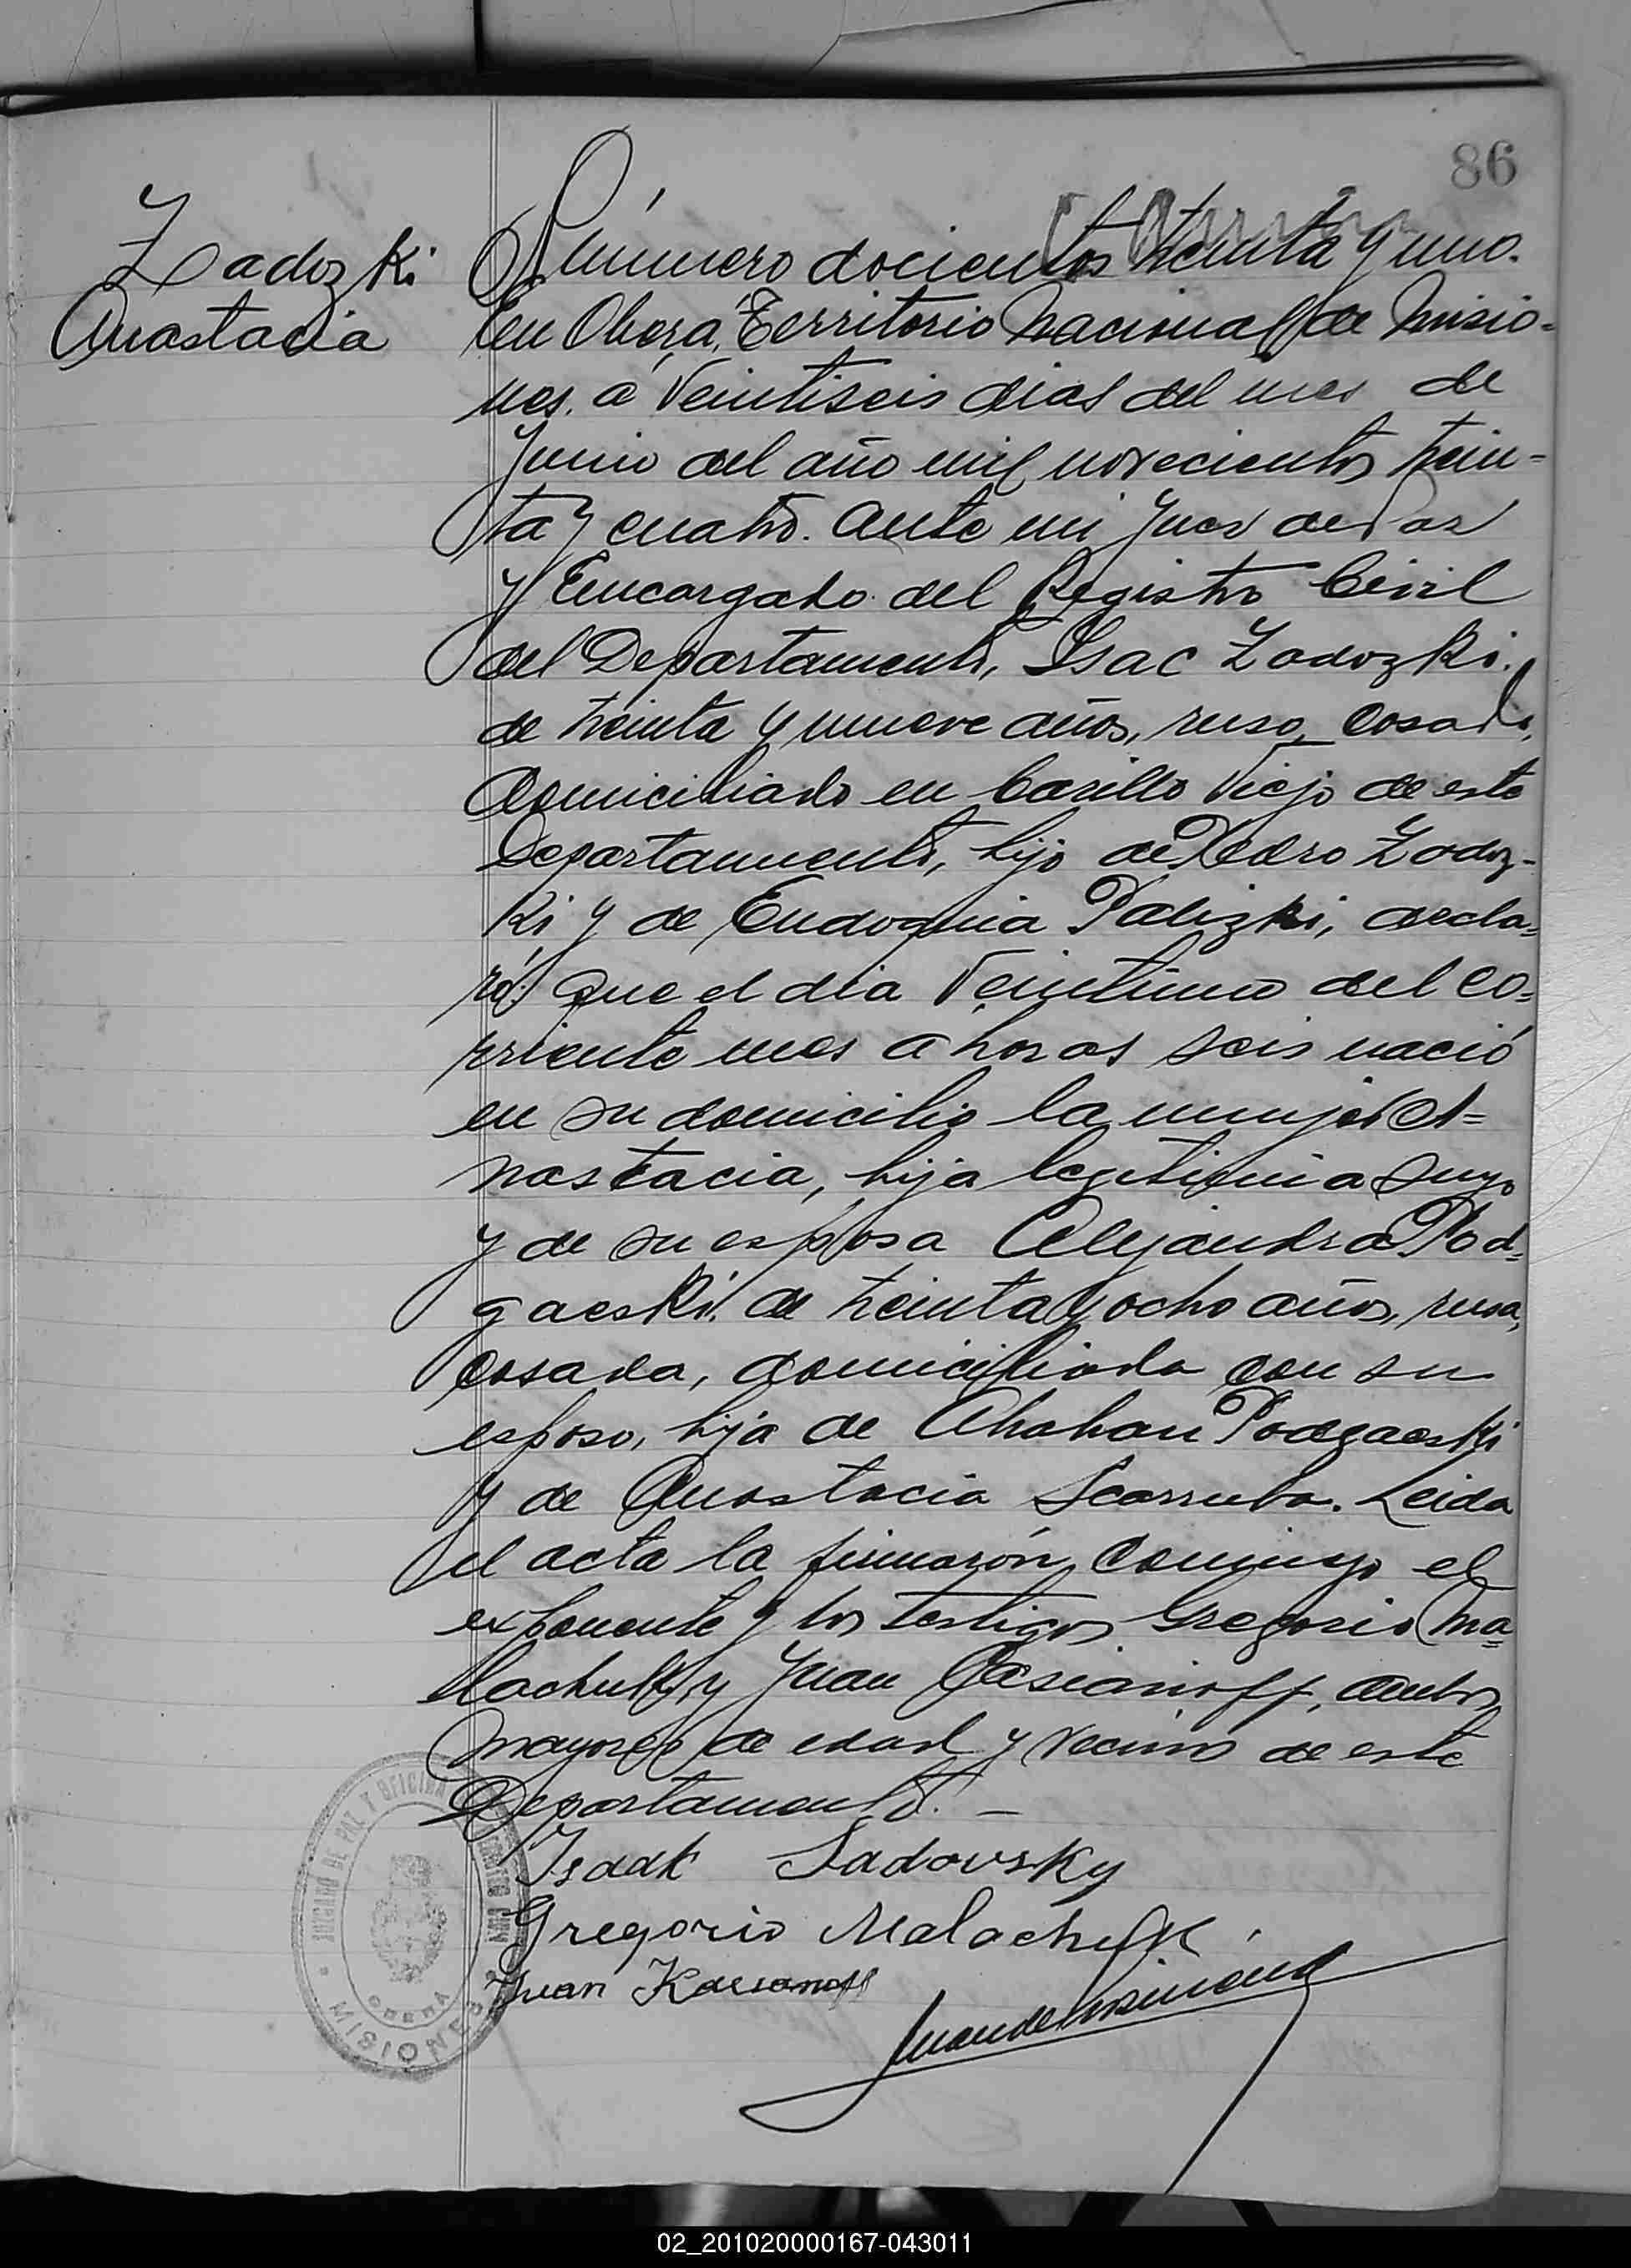 86
Zadozki
Anastacia
Número docientos treinta y uno.
En Oberá, Territorio Nacional de Misio-
nes, a veintiseis dias del mes de
Junio del año mil novecientos trein-
ta y cuatro. Ante mi Juez de Paz
y Encargado del Registro Civil
del Departamento, Isac Zadozki.
de treinta y nueve años, ruso, casado,
domiciliado en Carillo Viejo de este
Departamento, hijo de Pedro Zadoz-
ki y de Eudoquia Palizki, decla-
ró: Que el dia veintiuno del co-
rriente mes a horas seis nació
en su domicilio la mujer A=
nastacia, hija legitimia suyo
y de su esposa Alejandra Pod=
gaeski, de treinta y ocho años, rusa,
casada, domiciliada con su
esposo, hija de Podgaeski
y de Anastacia Leida
el acta la firmarón conmigo el
exponente y los testigos Gregorio Ma=
lachulk y Juan Casianoff, ambos
mayores de edad y vecinos de este
Departamento. —
Isaak Sadovsky
Gregorio Malachulk
Juan
JUZGADO DE PAZ Y OFICINA
OBERÁ
MISIONES
02_201020000167-043011